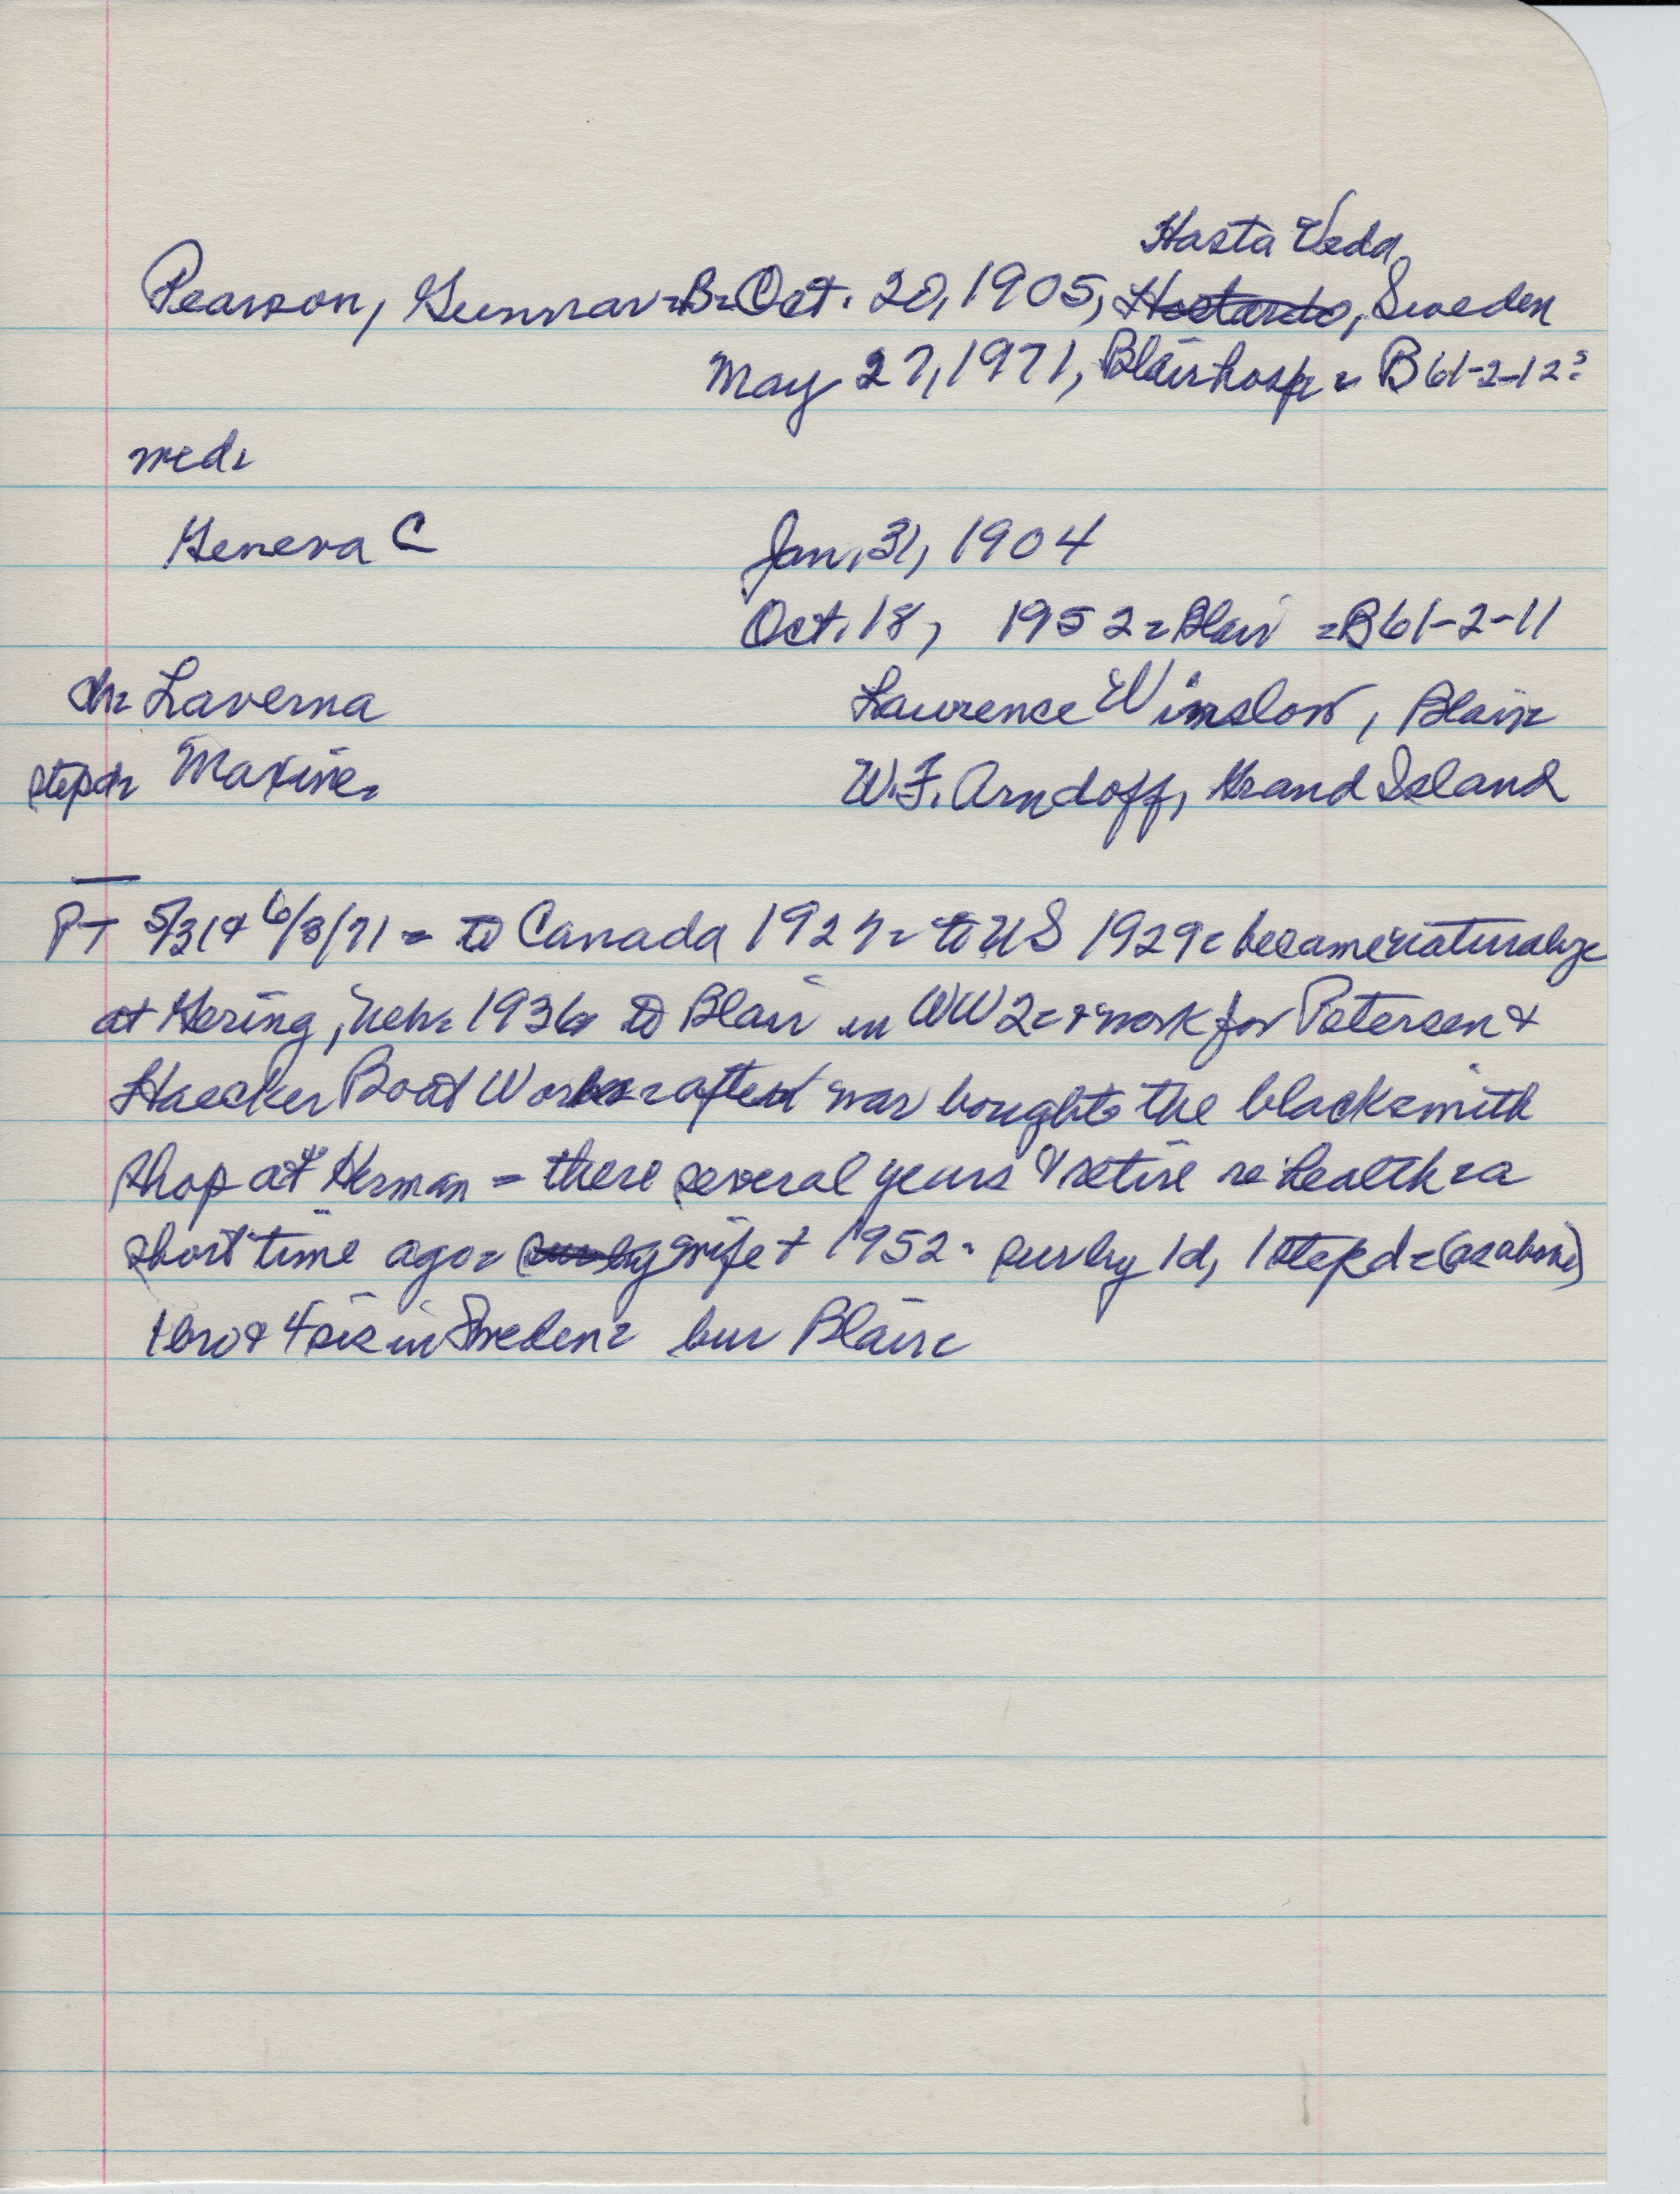 Hasta Veda
Pearson, Gunnar=B=Oct. 20, 1905, Hostardo, Sweden
May 27, 1971, Blair hosp = B61-2-12?
med=
Geneva C Jan. 31, 1904
Oct. 18, 1952=Blair =B61-2-11
ch= Laverna Laurence Winslow, Blair=
stepd= Maxine= W. F. Arndoff, Grand Island
PT 5/31& 6/3/71 = to Canada 1927= to US 1929= became naturalize
at Gering, Neb= 1936= to Blair in WW2=& work for Petersen &
Haecker Boat Works=after war bought the blacksmith
shop at Herman = there several years & retire re health=a
short time ago= sur by wife + 1952= sur by 1d, 1stepd=(as above)
1bro& 4sis in Sweden= bur Blair=